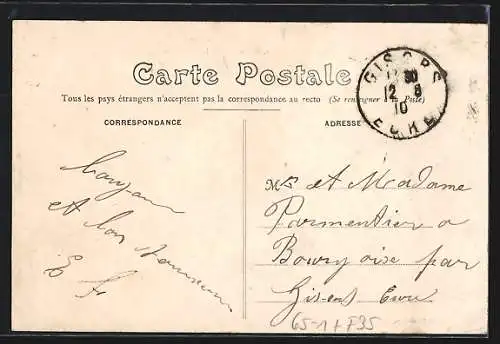 Carte Postale
Tous les pays étrangers n'acceptent pas la correspondance au recto (Se renseigner à la Poste)
CORRESPONDANCE
ADRESSE
GISORS
12 8
10
EURE
et
E F
Mr et Madame
Parmentier a
Boury oise par
Gisors Eure
65-1+F35